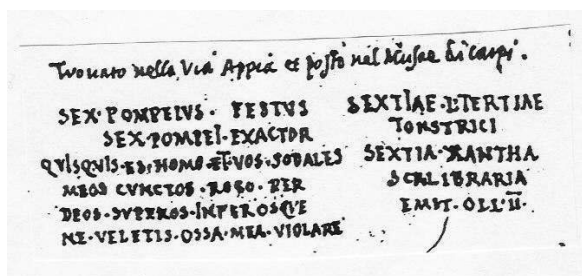 Trovato nella Via Appia et posto nel Musae di Carpi.
SEX·POMPEIVS· FESTVS
SEX·POMPEI·EXACTOR
QVISQVIS·ES·HOMO·ET·VOS·SODALES
MEOS CVNCTOS·ROGO·PER
DEOS·SVPEROS·INFEROSQVE
NE·VELETIS·OSSA·MEA·VIOLARE
SEXTIAE·L·TERTIAE
TONSTRICI
SEXTIA·XANTHA
SCRLIBRARIA
EMIT·OLL·II·